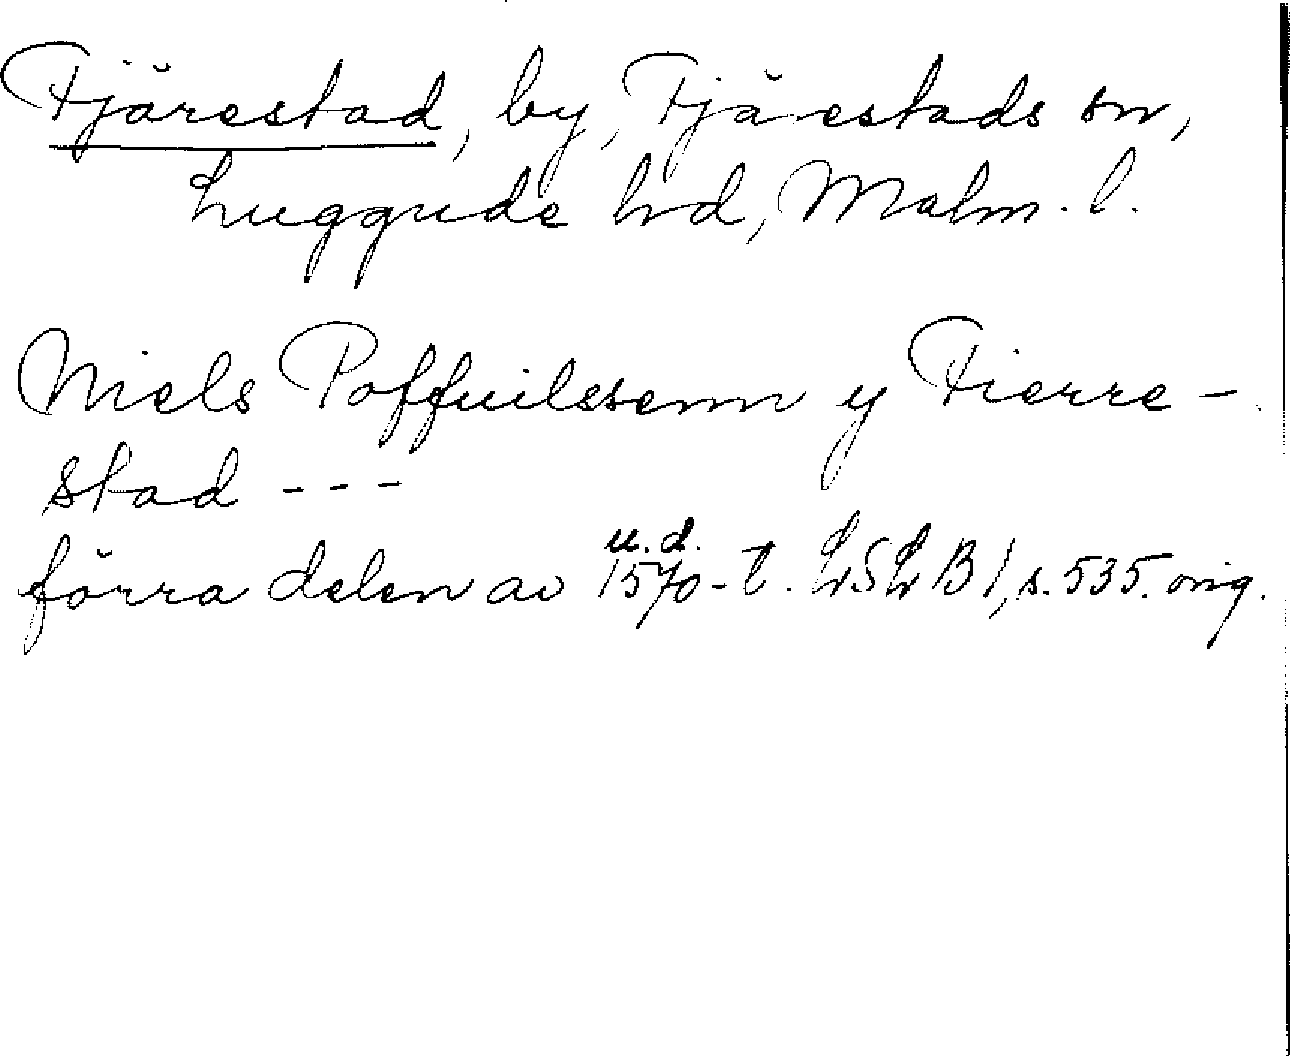 Fjärestad, by, Fjärestads sn,
Luggude hd, Malm. l.
Niels Poffuilssenn y Fierre-
stad ---
u.d.
förra delen av 1570-t. LSLB 1, s. 535. orig.